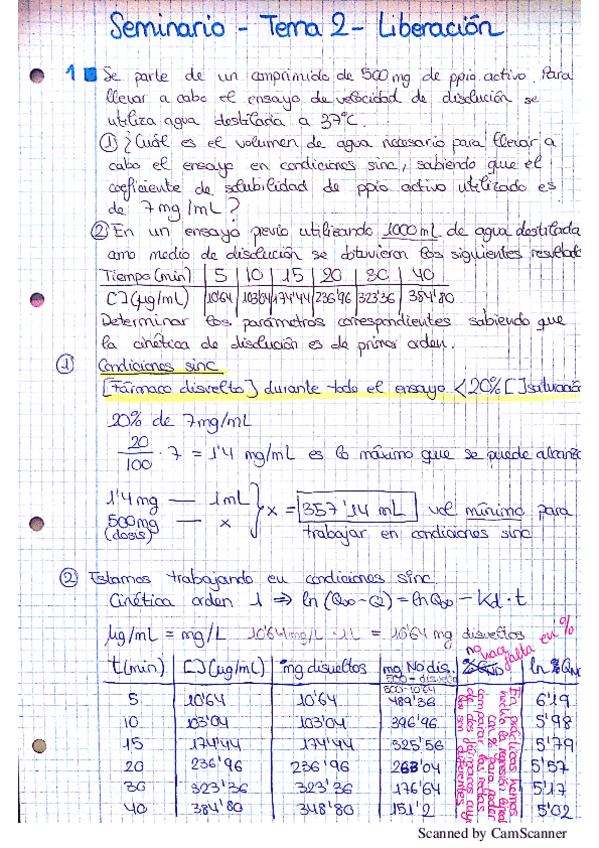 Seminario - Tema 2 - Liberación
1 Se parte de un comprimido de 500 mg de ppio activo. Para
llevar a cabo el ensayo de velocidad de disolución se
utiliza agua destilada a 37ºC.
① ¿Cuál es el volumen de agua necesario para llevar a
cabo el ensayo en condiciones sinc, sabiendo que el
coeficiente de solubilidad de ppio activo utilizado es
de 7 mg/mL?
② En un ensayo previo utilizando 1000 mL de agua destilada
como medio de disolución se obtuvieron los siguientes resultado
Tiempo (min) | 5 | 10 | 15 | 20 | 30 | 40
[ ] (µg/mL) | 10'64 | 103'04 | 174'44 | 236'96 | 323'36 | 384'80
Determinar los parámetros correspondientes sabiendo que
la cinética de disolución es de primer orden.
① Condiciones sinc
[Fármaco disuelto] durante todo el ensayo < 20% [ ] saturació
20% de 7mg/mL
20/100 · 7 = 1'4 mg/mL es lo máximo que se puede alcanza
1'4 mg — 1 mL
500 mg — x } x = 357'14 mL vol mínimo para
(dosis) trabajar en condiciones sinc
② Estamos trabajando en condiciones sinc
Cinética orden 1 ⇒ ln (Q∞-Q) = ln Q∞ - Kd · t
µg/mL = mg/L 10'64 mg/L · 1L = 10'64 mg disueltos
no hace falta en %
t (min) | [ ] (µg/mL) | mg disueltos | mg No dis. | % QND | ln % QND
500 - disuelto
500-10'64
5 | 10'64 | 10'64 | 489'36 | 6'19
10 | 103'04 | 103'04 | 396'96 | 5'98
15 | 174'44 | 174'44 | 325'56 | 5'79
20 | 236'96 | 236'96 | 263'04 | 5'57
30 | 323'36 | 323'36 | 176'64 | 5'17
40 | 384'80 | 348'80 | 151'2 | 5'02
En prácticas hemos
hecho la regresión lineal
con % para poder
comparar las rectas
de dos fármacos cuy
dos son diferentes
Scanned by CamScanner